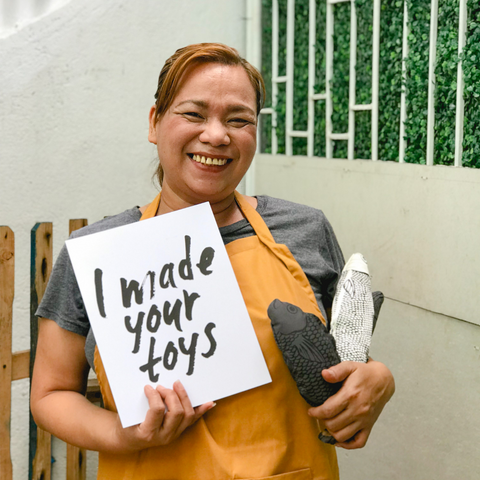 I made
your
toys